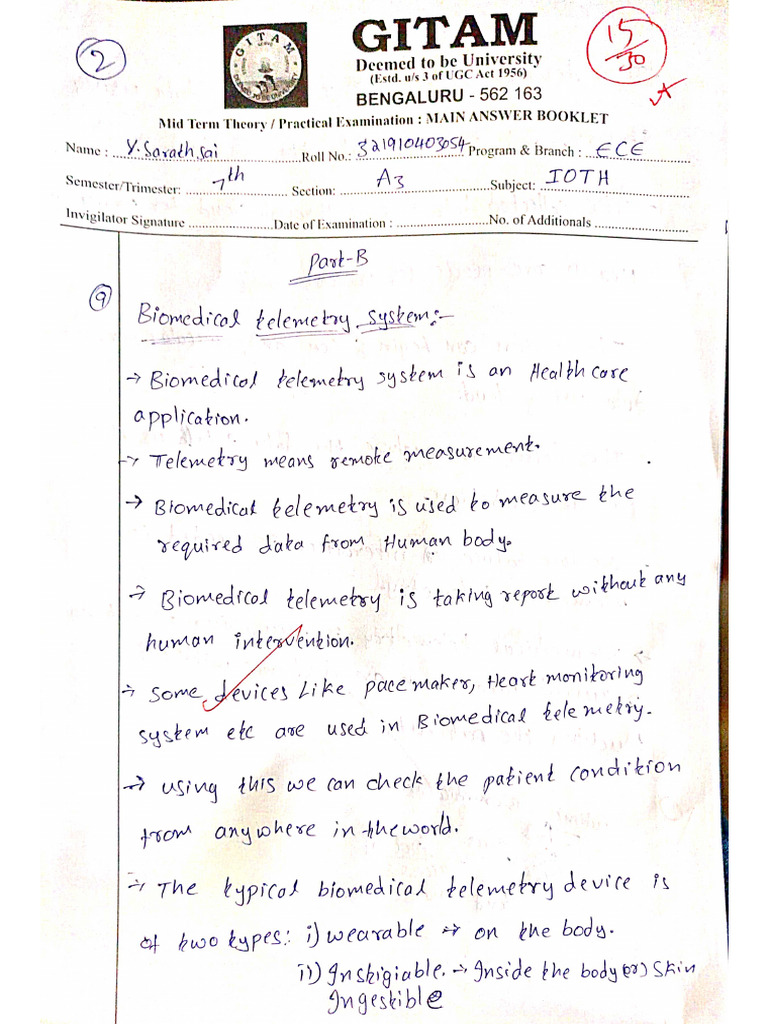 2
GITAM
DEEMED TO BE UNIVERSITY
GITAM
Deemed to be University
(Estd. u/s 3 of UGC Act 1956)
BENGALURU - 562 163
15/30
Mid Term Theory / Practical Examination : MAIN ANSWER BOOKLET
Name : Y. Sarath Sai Roll No.: 321910403054 Program & Branch : ECE
Semester/Trimester: 7th Section: A3 Subject: IOTH
Invigilator Signature Date of Examination : No. of Additionals
Part-B
9
Biomedical telemetry system:-
→ Biomedical telemetry system is an Healthcare
application.
→ Telemetry means remote measurement.
→ Biomedical telemetry is used to measure the
required data from Human body.
→ Biomedical telemetry is taking report without any
human intervention.
→ Some devices Like pacemaker, Heart monitoring
system etc are used in Biomedical telemetry.
→ using this we can check the patient condition
from anywhere in the world.
→ The typical biomedical telemetry device is
of two types: i) wearable → on the body.
ii) Instigiable. → Inside the body (or) skin
Ingestible